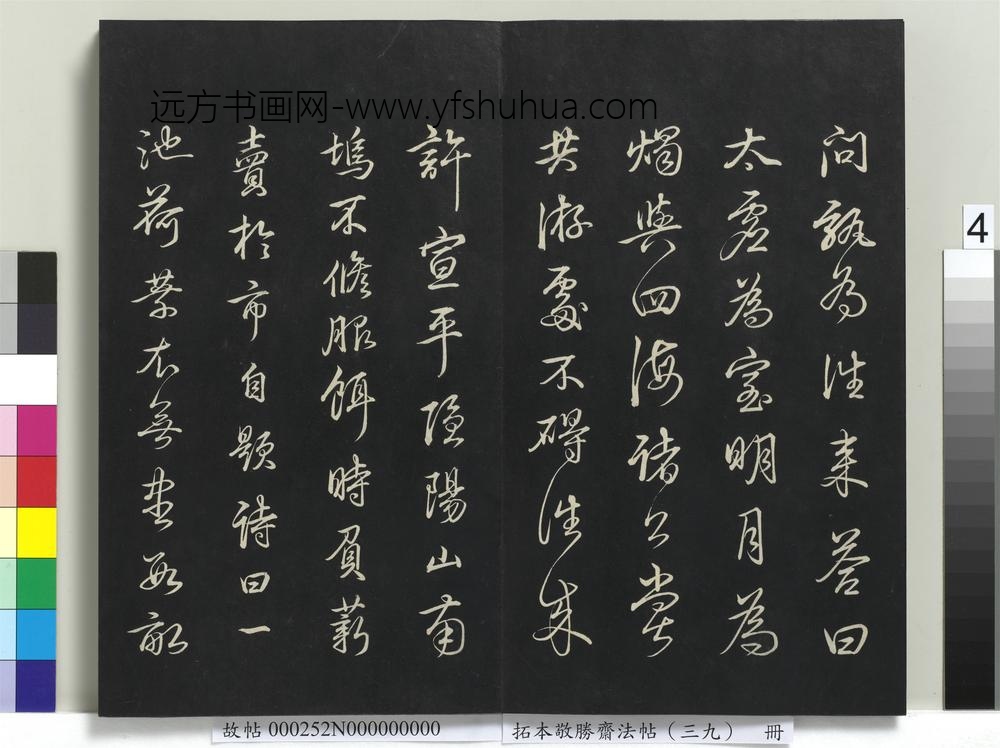 远方书画网-www.yfshuhua.com
問孰為往來答曰
太虛為室明月為
燭與四海諸公嘗
共游處不碍往來
許宣平隱陽山南
塢不修服餌時負薪
賣於市自題詩曰一
池荷葉衣無盡數畝
4
故帖 000252N000000000
拓本敬勝齋法帖（三九） 冊